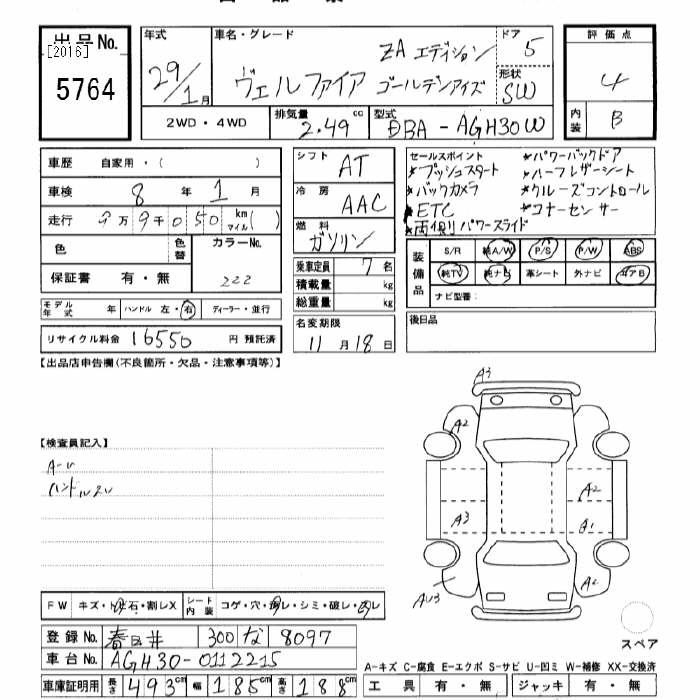 出品No.
[2016]
5764
年式
29/1月
車名・グレード
ZA エディション
ヴェルファイア ゴールデンアイズ
ドア
5
形状
SW
評価点
4
内装
B
2WD・4WD
排気量
2.49cc
型式
DBA-AGH30W
車歴 自家用・( )
車検 8年1月
走行 9万9千050km
マイル( )
色
色替
カラーNo.
222
保証書 有・無
モデル年式 年 ハンドル 左・右 ディーラー・並行
リサイクル料金 16550円 預託済
シフト
AT
冷房
AAC
燃料
ガソリン
乗車定員 7名
積載量 kg
総重量 kg
名変期限
11月18日
セールスポイント
*プッシュスタート
*バックカメラ
*ETC
*両側パワースライド
*パワーバックドア
*ハーフレザーシート
*クルーズコントロール
*コナーセンサー
装備品
S/R 純A/W P/S P/W ABS
純TV 純ナビ 革シート 外ナビ エアB
ナビ型番:
後日品
【出品店申告欄(不良箇所・欠品・注意事項等)】
【検査員記入】
A-U
ハンドルスレ
A3
A2
A2
A3
A1
AU3
A2
スペア
FW キズ・ト石・割レX
シート内装 コゲ・穴・スレ・シミ・破レ・
登録No. 春日井 300 な 8097
車台No. AGH30-0112215
車庫証明用 長さ 493cm 幅 185cm 高さ 188cm
A-キズ C-腐食 E-エクボ S-サビ U-凹ミ W-補修 XX-交換済
工具 有・無 ジャッキ 有・無